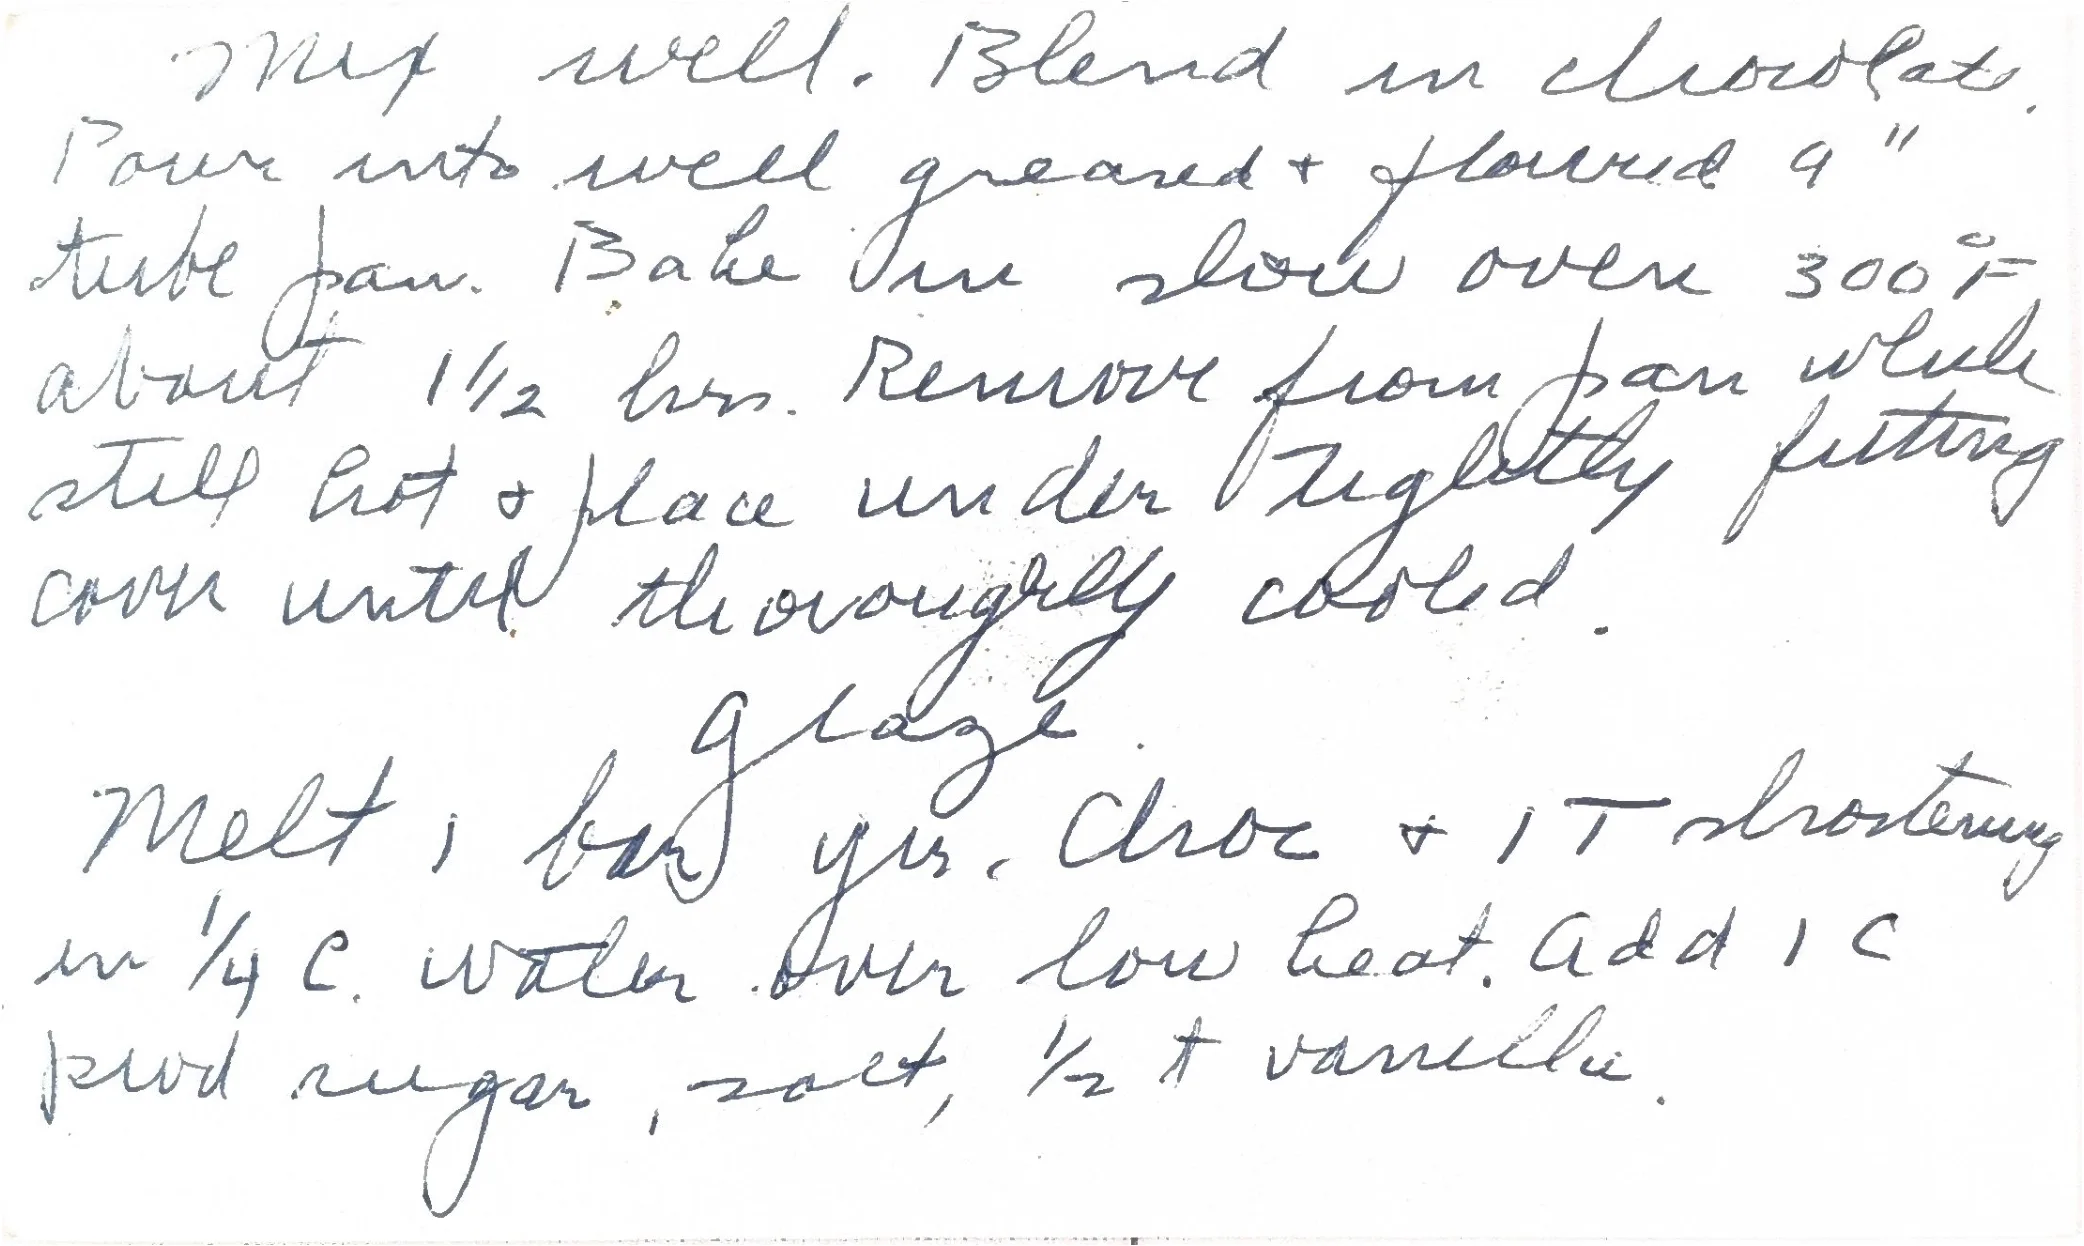 Mix well. Blend in chocolate.
Pour into well greased + floured 9"
tube pan. Bake in slow oven 300°F
about 1 1/2 hrs. Remove from pan while
still hot + place under tightly fitting
cover until thoroughly cooled.
Glaze
Melt 1 bar ger. Choc + 1 T shortening
in 1/4 C. water over low heat. Add 1 C
pwd sugar, salt, 1/2 t vanilla.